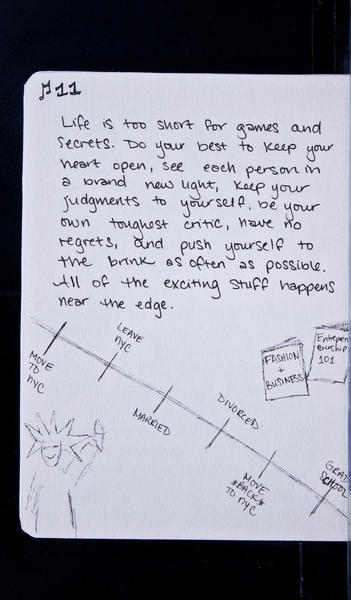 ♫11
Life is too short for games and
secrets. Do your best to keep your
heart open, see each person in
a brand new light, keep your
judgments to yourself, be your
own toughest critic, have no
regrets, and push yourself to
the brink as often as possible.
All of the exciting stuff happens
near the edge.
MOVE
TO
NYC
LEAVE
NYC
MARRIED
DIVORCED
MOVE
*BACK*
TO NYC
GRAD
SCHOOL
FASHION
+
BUSINESS
Entrepen
eurship
101